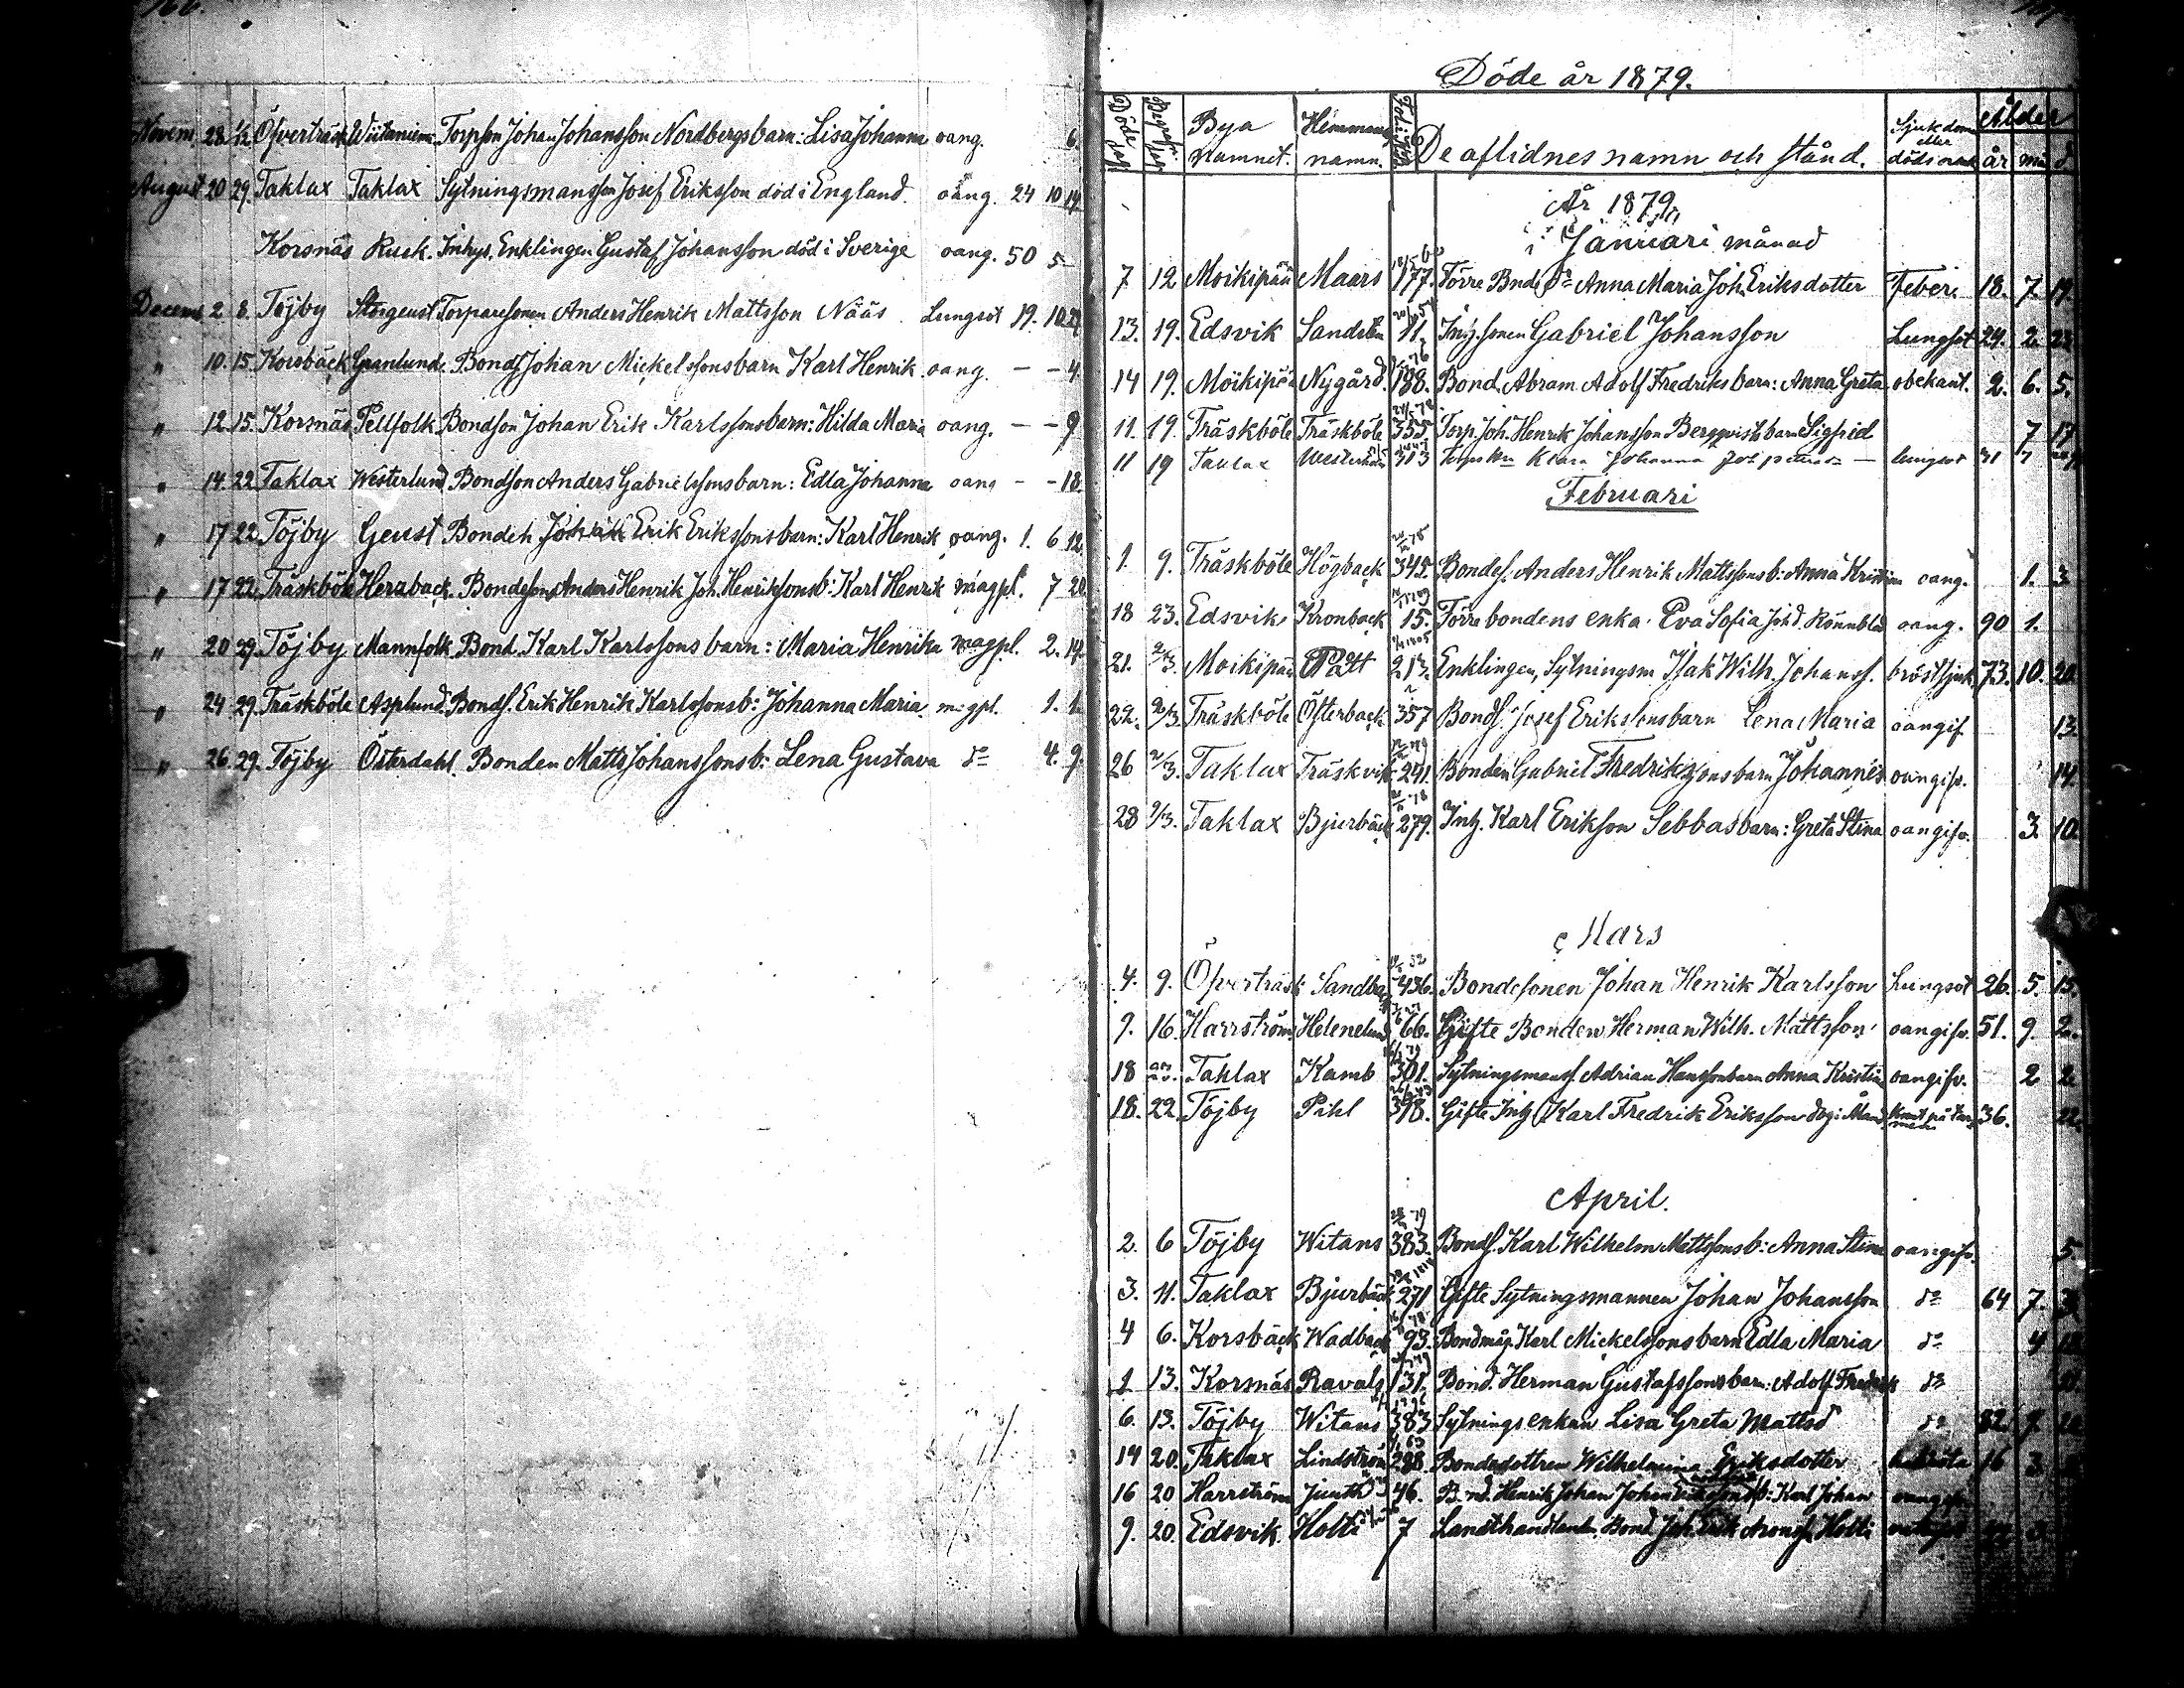 Novem. 28. 1/12. Öfverträsk Wiitaniemi Torpson Johan Johansson Nordbergs barn: Lisa Johanna oang. 6.
August 20 29. Taklax Taklax Sytningsmansson Josef Eriksson död i England. oang. 24 10 19.
Korsnäs Rusk. Inhys. Enklingen Gustaf Johansson död i Sverige oang. 50 5
Decemb 2. 8. Töjby Storgeust Torparesonen Anders Henrik Mattsson Nääs. Lungsot 19. 10. 29.
" 10. 15. Korsbäck Granlund. Bonds. Johan Mickelssons barn Karl Henrik. oang. - - 4.
" 12. 15. Korsnäs Pellfolk Bondson Johan Erik Karlssons barn: Hilda Maria oang. - - 9.
" 14. 22. Taklax Westerlund Bondson Anders Gabrielssons barn: Edla Johanna oang - - 18.
" 17 22. Töjby Geust Bonden Erik Erikssons barn: Karl Henrik oang. 1. 6 12.
" 17 22. Träskböle Herzback. Bondeson Anders Henrik Joh. Henrikssons b: Karl Henrik magpl. 7 20.
" 20 29. Töjby Mannfolk Bond. Karl Karlssons barn: Maria Henrika magpl. 2. 19.
" 24. 29. Träskböle Asplund. Bonds. Erik Henrik Karlssons b: Johanna Maria. magpl. 1. 1.
" 26. 29. Töjby Österdahl. Bonden Matts Johanssons b: Lena Gustava do 4. 9.
Döde år 1879.
Döde dag Begrafn. dag Bya namnet. Hemmans namn. De aflidnes namn och stånd. Sjukdom eller dödsorsak Ålder år mån d.
År 1879,
i Januari månad
7 12 Moikipää Maars 177. Förre Bnde Dr Anna Maria Joh. Eriksdotter Feber. 18. 7. 19.
13. 19. Edsvik Sandsten 11. Inh. sonen Gabriel Johansson Lungsot 24. 2. 22.
14 19. Moikipää Nygård. 188. Bond. Abram Adolf Fredriks barn: Anna Greta obekant. 2. 6. 5.
11. 19. Träskböle Träskböle 355. Torp. Joh. Henrik Johansson Bergqvists barn Sigfrid 7 17.
11 19 Taklax Westerlund 313 Klara Johanna lungsot 31 7
Februari
1. 9. Träskböle Högback 345. Bondes. Anders Henrik Mattssons b: Anna Kristina oang. 1. 3
18 23. Edsvik Kronback 15. Förre bondens enka Eva Sofia Joh.d. Rönnblad oang. 90 1.
21. 2/3. Moikipää Pått 213. Enklingen, Sytningsm Isak Wilh. Johanss. bröstsjuk 73. 10. 20.
22. 2/3. Träskböle Österback 357 Bonds. Josef Erikssons barn Lena Maria oangif. 13.
26 2/3. Taklax Träskvik 241. Bonden Gabriel Fredrikssons barn Johannes oangifv. 14.
28 9/3. Taklax Bjurbäck 279. Inh. Karl Erikson Sebbas barn: Greta Stina oangifv. 3. 10.
Mars
4. 9. Öfverträsk Sandback 436. Bondesonen Johan Henrik Karlsson Lungsot 26. 5. 15.
9. 16. Harrström Helenelund 66. Gifte Bonden Herman Wilh. Mattsson oangifv. 51. 9. 2.
18 Taklax Kamb 301. Sytningsmans. Adrian Hanssons barn Anna Kristina oangifv. 2 2.
18. 22. Töjby Pihl 378. Gifte Inh. Karl Fredrik Eriksson 36. 22.
April.
2. 6 Töjby Witans 383. Bonds. Karl Wilhelm Mattssons b: Anna Stina oangifv. 5.
3. 11. Taklax Bjurbäck 271 Gifte Sytningsmannen Johan Johansson do 64 7.
4 6. Korsbäck Wadback 93. Bondmåg. Karl Mickelssons barn Edla Maria do 4 18.
1 13. Korsnäs Ravals 131. Bond. Herman Gustafssons barn: Adolf Fredrik do
6. 13. Töjby Witans 383 Sytningsenkan Lisa Greta Mattsd do 82 9
14 20. Taklax Lindström 288. Bondedottren Wilhelmina Eriksdotter 16 3.
16 20 Harrström Junth 46. Bond. Henrik Johan b: Karl Johan oangifv.
9. 20. Edsvik Holti 7 Landthandlanden Bond Joh. Erik Aronss. Holti